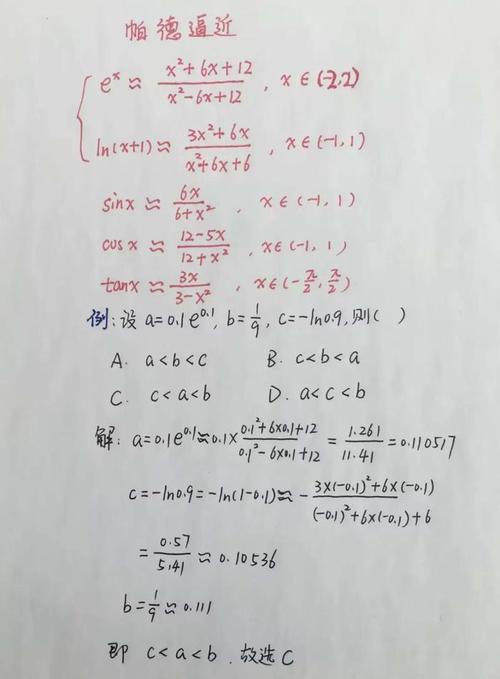 帕德逼近
e^x ≈ (x²+6x+12)/(x²-6x+12), x∈(-2,2)
ln(x+1) ≈ (3x²+6x)/(x²+6x+6), x∈(-1,1)
sinx ≈ 6x/(6+x²), x∈(-1,1)
cosx ≈ (12-5x)/(12+x²), x∈(-1,1)
tanx ≈ 3x/(3-x²), x∈(-π/2,π/2)
例:设a=0.1e^0.1, b=1/9, c=-ln0.9,则( )
A. a<b<c B. c<b<a
C. c<a<b D. a<c<b
解: a=0.1e^0.1≈0.1×(0.1²+6×0.1+12)/(0.1²-6×0.1+12)=1.261/11.41=0.110517
c=-ln0.9=-ln(1-0.1)≈-(3×(-0.1)²+6×(-0.1))/((-0.1)²+6×(-0.1)+6)
=0.57/5.41≈0.10536
b=1/9≈0.111
即 c<a<b.故选C